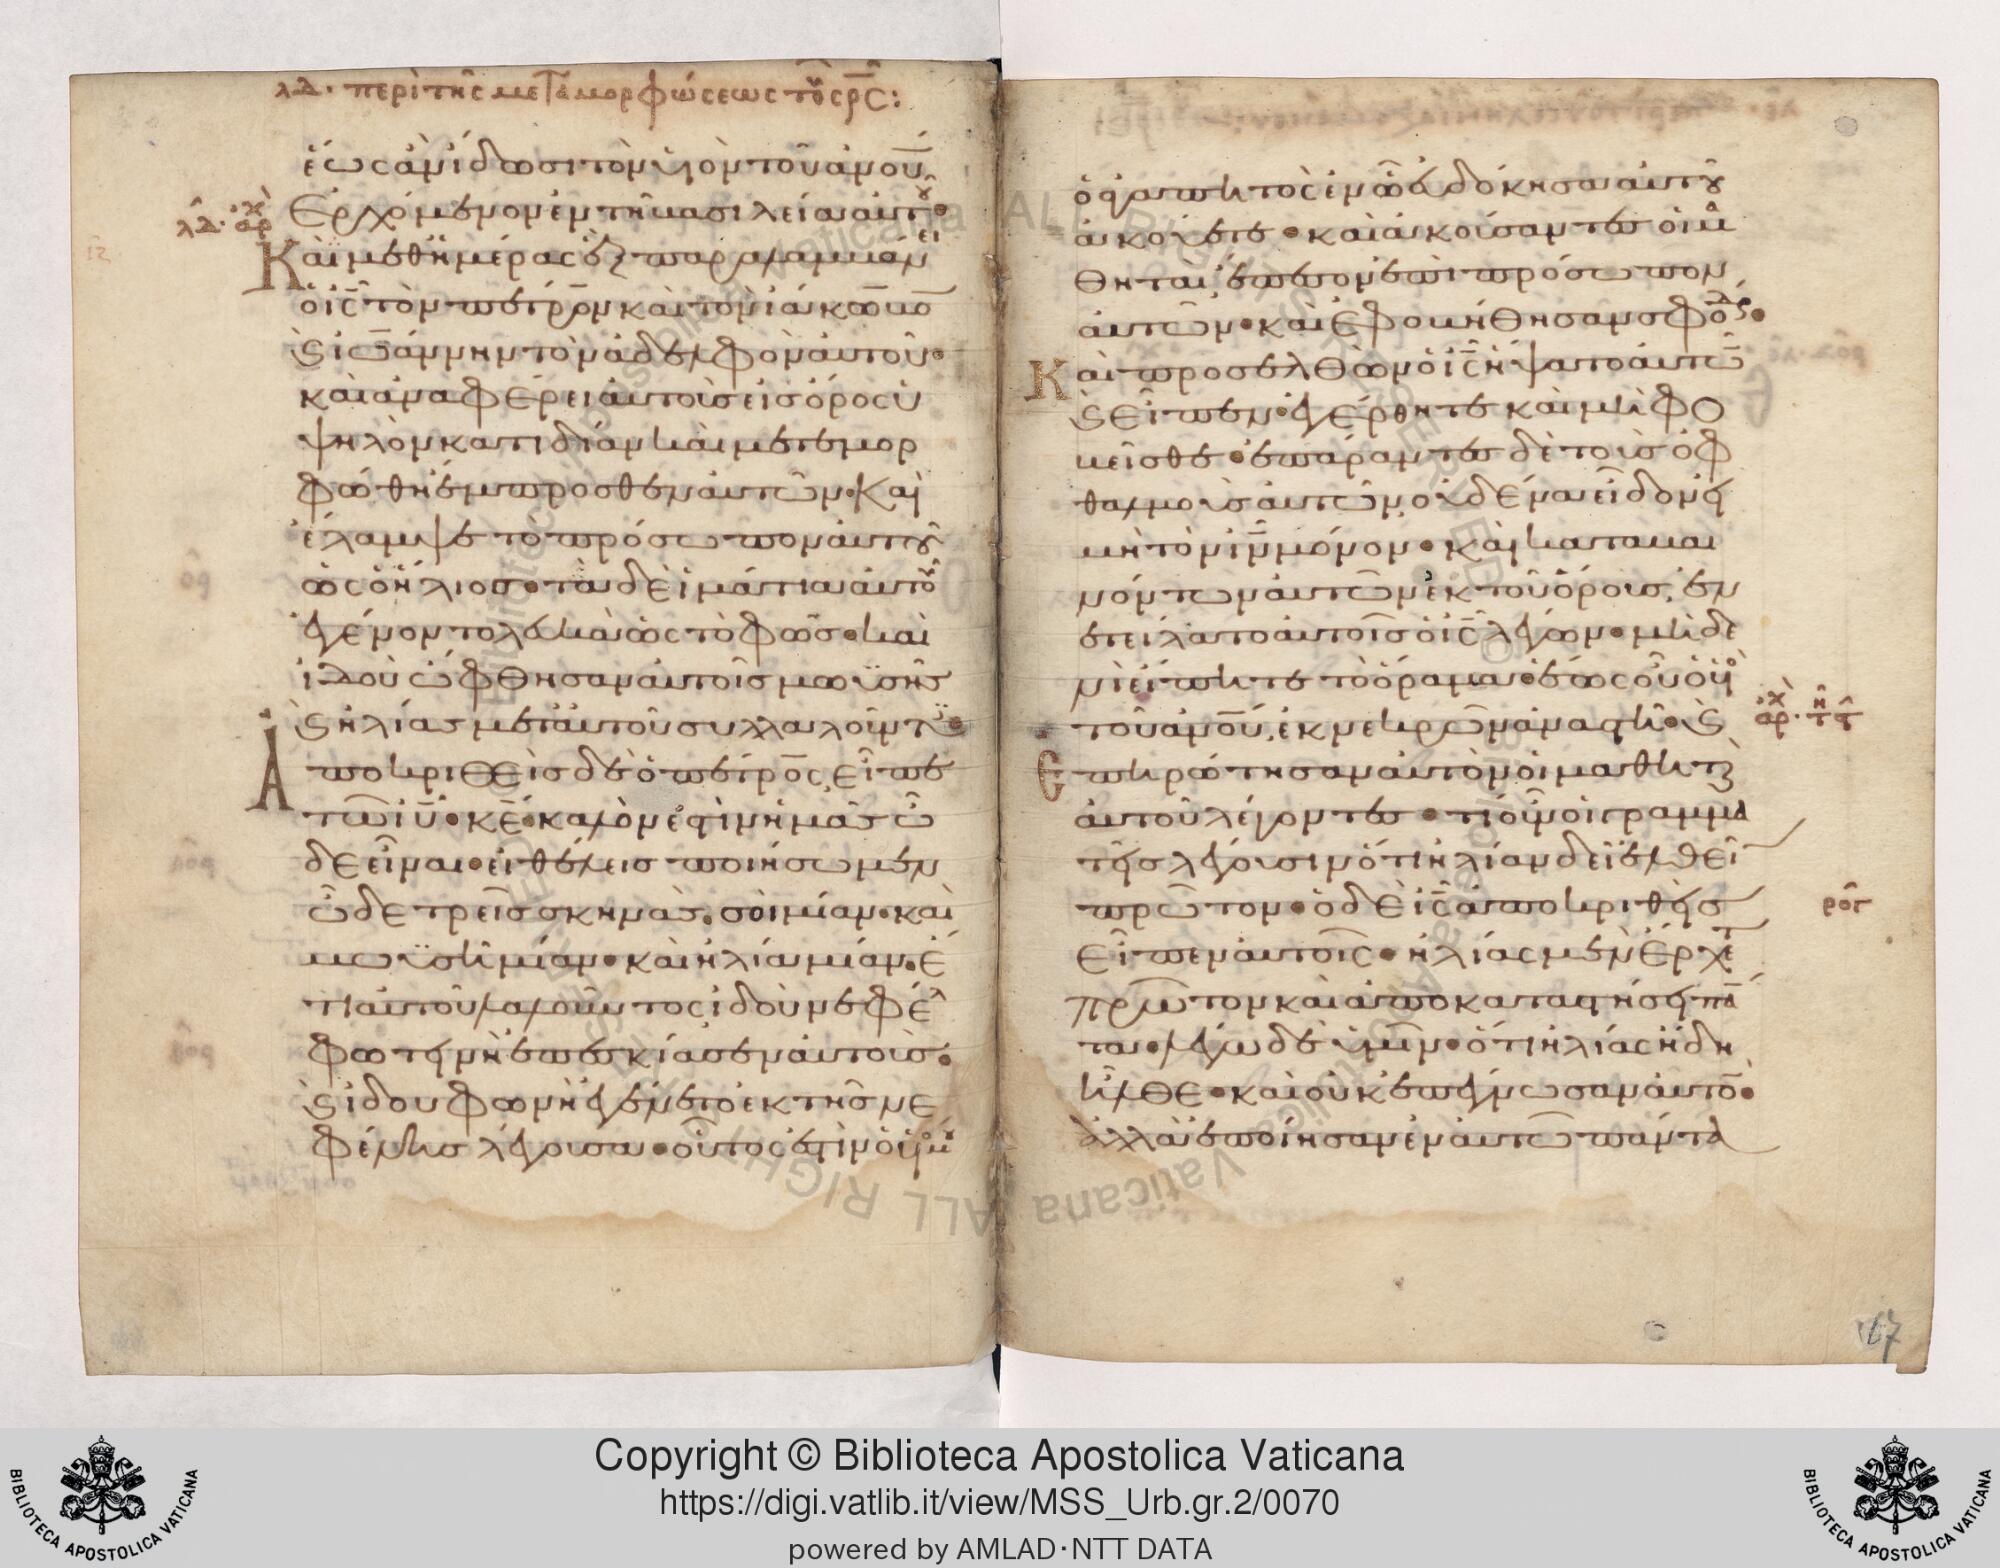 λδ· περὶ τῆς μεταμορφώσεως τοῦ ς̅ρ̅ς̅:
ἕως ἂν ἴδωσι τὸν υἱὸν τοῦ ἀν̅ο̅υ̅
ἐρχόμενον ἐν τῆ βασιλεία αὐτοῦ·
Καὶ μεθ' ἡμέρας ἓξ παραλαμβάνει
ὁ ι̅ς̅ τὸν πέτρον καὶ τὸν ἰάκωβο
καὶ ἰωάννην τὸν ἀδελφὸν αὐτοῦ·
καὶ ἀναφέρει αὐτοὺς εἰς ὄρος ὑ
ψηλὸν κατιδίαν καὶ μετεμορ
φώθη ἔμπροσθεν αὐτῶν· καὶ
ἔλαμψε τὸ πρόσωπον αὐτοῦ
ὡς ὁ ἥλιος· τὰ δὲ ἱμάτια αὐτοῦ
ἐγένοντο λευκὰ ὡς τὸ φῶς· καὶ
ἰδοὺ ὤφθησαν αὐτοῖς μωϋσῆς
καὶ ἠλίας μετ' αὐτοῦ συλλαλοῦντες·
Ἀ
ποκριθεὶς δὲ ὁ πέτρος, εἶπε
τῶ ι̅υ̅· κ̅ε̅· καλόν ἐστιν ἡμᾶς ὧ
δε εἶναι· εἰ θέλεις ποιήσωμεν
ὧδε τρεῖς σκηνάς· σοὶ μίαν· καὶ
μωϋσῆ μίαν· καὶ ἠλία μίαν· ἔ
τι αὐτοῦ λαλοῦντος ἰδοὺ νεφέλ
φωτεινὴ ἐπεσκίασεν αὐτούς·
καὶ ἰδου φωνὴ ἐγένετο ἐκ τῆς νε
φέλης λέγουσα· οὗτός ἐστιν ὁ υἱός μου
ὁ ἀγαπητὸς ἐν ὧ εὐδόκησα αὐτοῦ
ἀκούετε· καὶ ἀκούσαντες οἱ μα
θηταὶ, ἔπεσον ἐπὶ πρόσωπον
αὐτῶν· καὶ ἐφοβήθησαν σφόδρα·
Καὶ προσελθὼν ὁ ι̅ς̅ ἥψατο αὐτῶν
καὶ εἶπεν· ἐγέρθητε καὶ μὴ φο
βεῖσθε· ἐπάραντες δὲ τοὺς ὀφ
θαλμοὺς αὐτῶν, οὐδένα εἶδον εἰ
μὴ τὸν ι̅ν̅ μόνον· καὶ καταβαι
νόντων αὐτῶν ἐκ τοῦ ὄρους, ἐν
ετείλατο αὐτοῖς ὁ ι̅ς̅ λέγων· μηδε
νὶ εἴπητε τὸ ὅραμα· ἕως οὗ ὁ υἱὸς
τοῦ ἀν̅ο̅υ̅, ἐκ νεκρῶν ἀναστῆ· καὶ
ἐ
πηρώτησαν αὐτὸν οἱ μαθηταὶ
αὐτοῦ λέγοντες· τί οὖν οἱ γραμμα
τεῖς λέγουσιν ὅτι ἠλίαν δεῖ ἐλθεῖν
πρῶτον· ὁ δὲ ι̅ς̅ ἀποκριθεὶς
εἶπεν αὐτοῖς· ἠλίας μὲν ἔρχεται
πρῶτον καὶ ἀποκαταστήσει πάν
τα· λέγω δὲ ὑμῖν· ὅτι ἠλίας ἤδη
ἦλθε· καὶ οὐκ ἐπέγνωσαν αὐτόν·
ἀλλὰ ἐποίησαν ἐν αὐτῶ πάντα
67
Copyright © Biblioteca Apostolica Vaticana
https://digi.vatlib.it/view/MSS_Urb.gr.2/0070
powered by AMLAD·NTT DATA
BIBLIOTECA APOSTOLICA VATICANA
BIBLIOTECA APOSTOLICA VATICANA